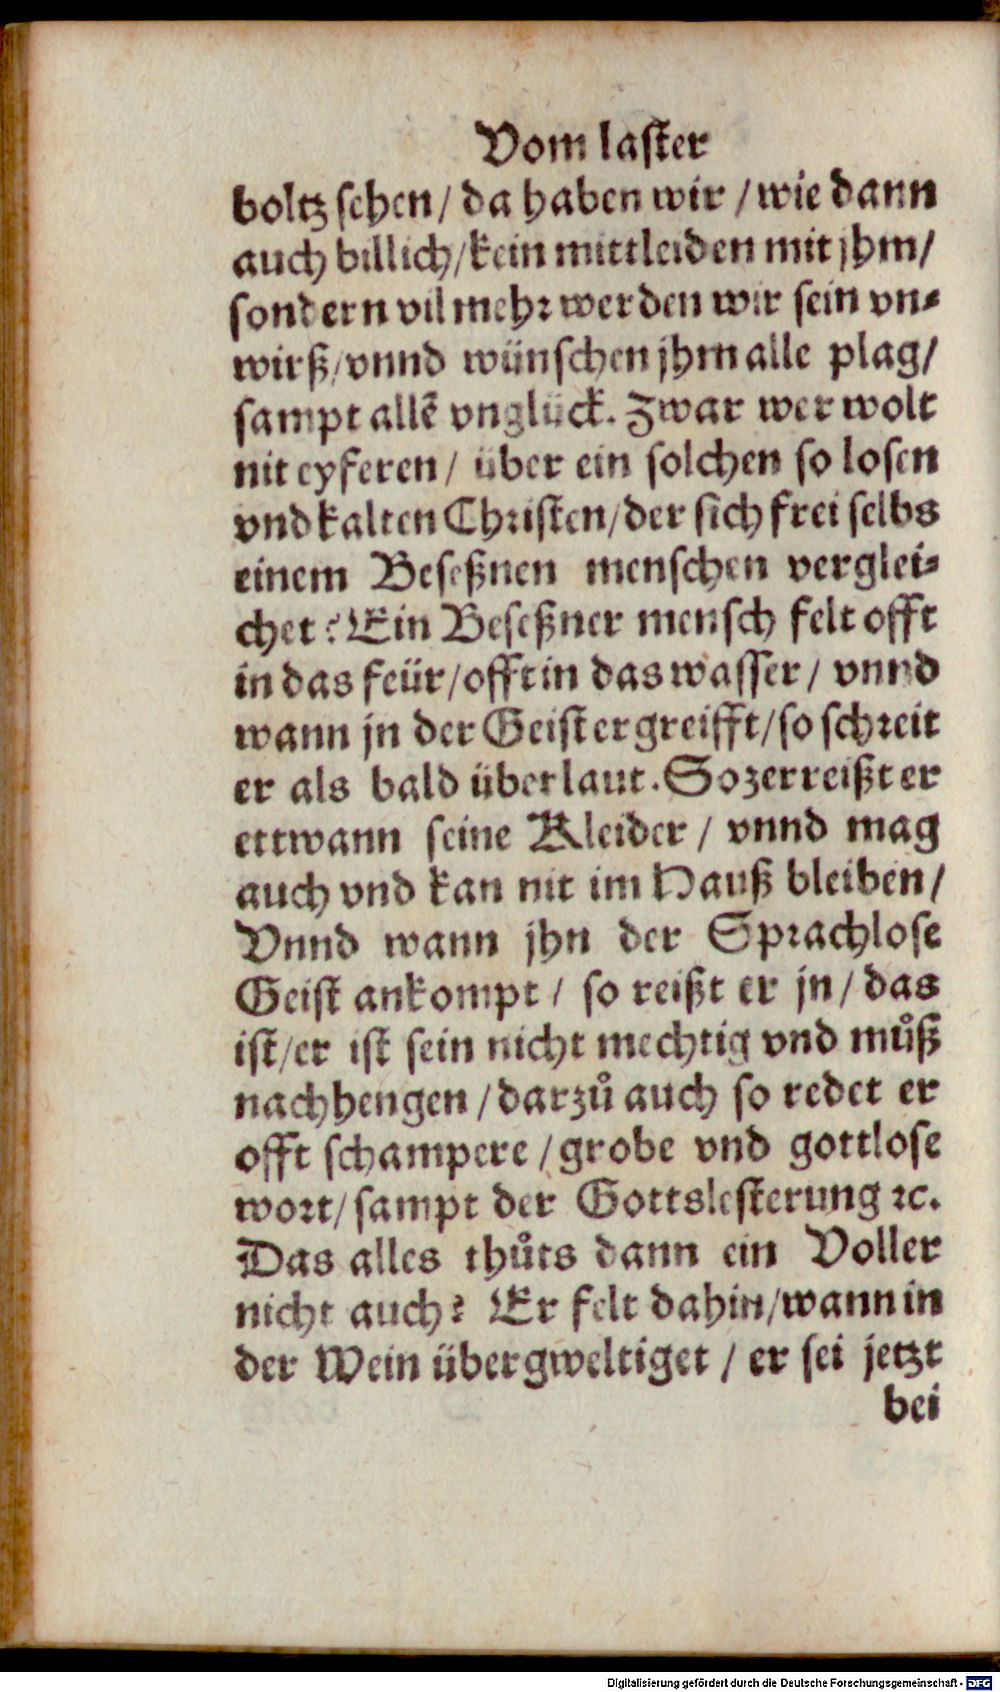 Vom laster
boltz sehen / da haben wir / wie dann
auch billich / kein mittleiden mit jhm /
sondern vil mehr werden wir sein vn⸗
wirß / vnnd wünschen jhm alle plag /
sampt allẽ vnglück. Zwar wer wolt
nit eyferen / über ein solchen so losen
vnd kalten Christen / der sich frei selbs
einem Beseßnen menschen verglei⸗
chet? Ein Beseßner mensch felt offt
in das feür / offt in das wasser / vnnd
wann jn der Geist ergreifft / so schreit
er als bald überlaut. So zerreißt er
ettwann seine Kleider / vnnd mag
auch vnd kan nit im Hauß bleiben /
Vnnd wann jhn der Sprachlose
Geist ankompt / so reißt er jn / das
ist / er ist sein nicht mechtig vnd muͦß
nachhengen / darzuͦ auch so redet er
offt schampere / grobe vnd gottlose
wort / sampt der Gottslesterung ꝛc.
Das alles thuͦts dann ein Voller
nicht auch? Er felt dahin / wann in
der Wein übergweltiget / er sei jetzt
bei
Digitalisierung gefördert durch die Deutsche Forschungsgemeinschaft - DFG